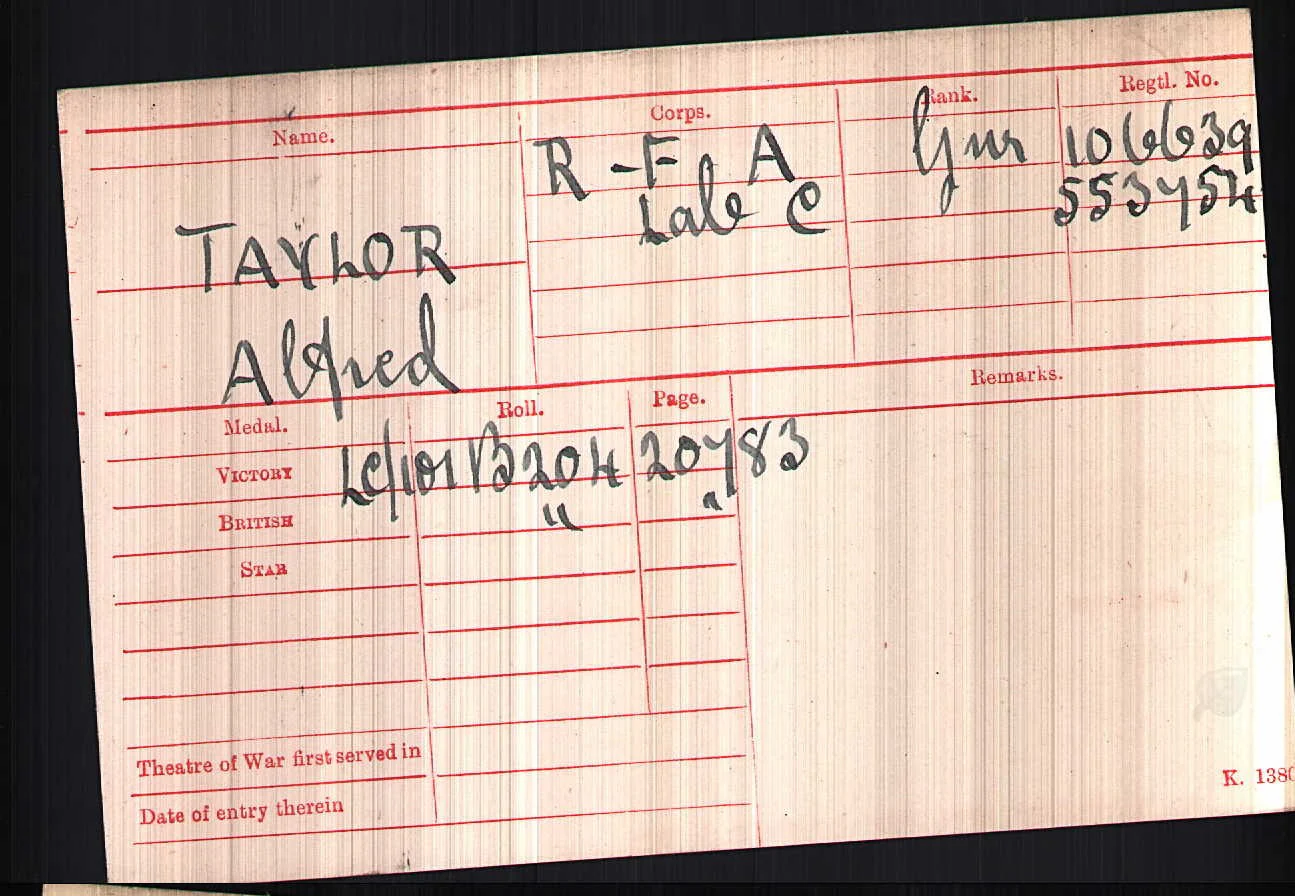 Name.
Corps.
Rank.
Regtl. No.
R - F A
Gnr
106639
TAYLOR
Lab C
553754
Alfred
Medal.
Roll.
Page.
Remarks.
VICTORY
LC/101B204
20783
BRITISH
"
"
STAR
Theatre of War first served in
Date of entry therein
K. 1380